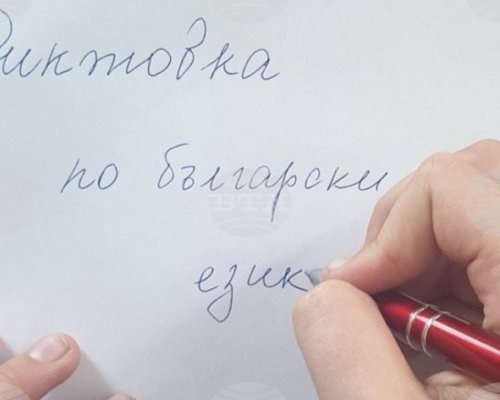 Диктовка
по български
БТА
език